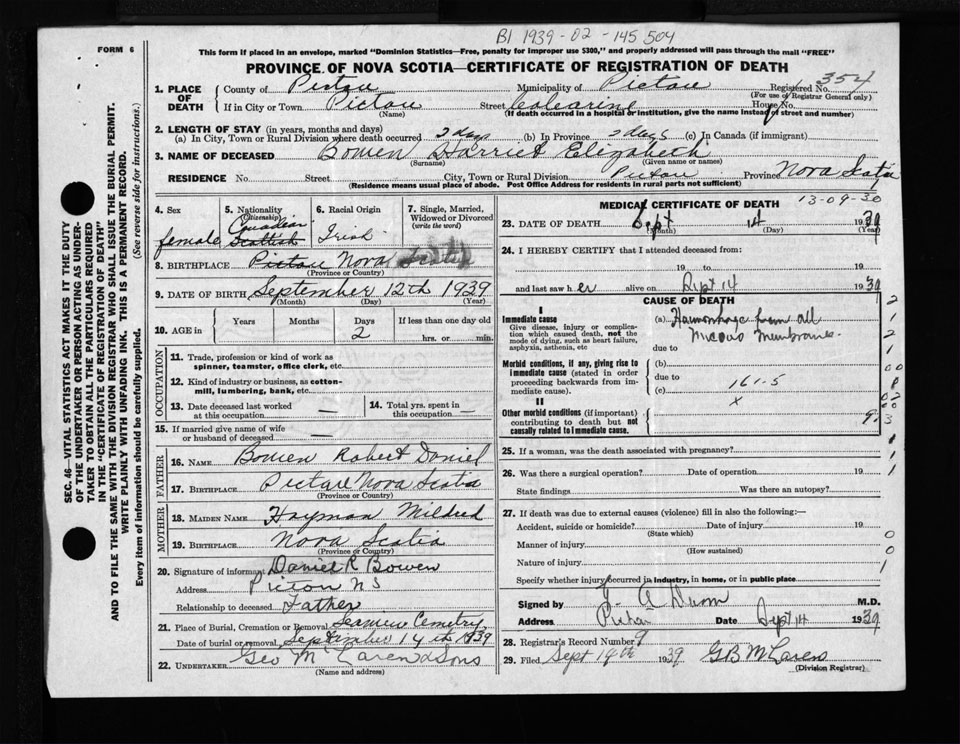 B1 1939-02-145504
FORM 6
This form if placed in an envelope, marked "Dominion Statistics—Free, penalty for improper use $300," and properly addressed will pass through the mail "FREE"
PROVINCE OF NOVA SCOTIA—CERTIFICATE OF REGISTRATION OF DEATH
1. PLACE OF DEATH County of Pictou Municipality of Pictou Registered No. 354
(For use of Registrar General only)
If in City or Town Pictou Street House No.
(Name) (If death occurred in a hospital or institution, give the name instead of street and number)
2. LENGTH OF STAY (in years, months and days)
(a) In City, Town or Rural Division where death occurred 2 days (b) In Province 2 days (c) In Canada (if immigrant)
3. NAME OF DECEASED Bowen Harriet Elizabeth
(Surname) (Given name or names)
RESIDENCE No. Street City, Town or Rural Division Pictou Province Nova Scotia
(Residence means usual place of abode. Post Office Address for residents in rural parts not sufficient) 1
4. Sex
female
5. Nationality (Citizenship)
Canadian
Scottish
6. Racial Origin
Irish
7. Single, Married, Widowed or Divorced (write the word)
8. BIRTHPLACE Pictou Nova Scotia
(Province or Country)
9. DATE OF BIRTH September 12th 1939
(Month) (Day) (Year)
10. AGE in Years Months Days If less than one day old
2 hrs. or min.
OCCUPATION
11. Trade, profession or kind of work as spinner, teamster, office clerk, etc.
12. Kind of industry or business, as cotton-mill, lumbering, bank, etc.
13. Date deceased last worked at this occupation —
14. Total yrs. spent in this occupation —
15. If married give name of wife or husband of deceased —
FATHER
16. NAME Bowen Robert Daniel
17. BIRTHPLACE Pictou Nova Scotia
(Province or Country)
MOTHER
18. MAIDEN NAME Hayman Mildred
19. BIRTHPLACE Nova Scotia
(Province or Country)
20. Signature of informant Daniel R Bowen
Address Picton N S
Relationship to deceased Father
21. Place of Burial, Cremation or Removal Seaview Cemetry
Date of burial or removal September 14th 1939
22. UNDERTAKER Geo McLaren & Sons
(Name and address)
MEDICAL CERTIFICATE OF DEATH
13-09-30
23. DATE OF DEATH Sept 14 1939
(Month) (Day) (Year)
24. I HEREBY CERTIFY that I attended deceased from:
19 to 19
and last saw her alive on Sept 14 1939
CAUSE OF DEATH
I
Immediate cause
Give disease, injury or complication which caused death, not the mode of dying, such as heart failure, asphyxia, asthenia, etc
(a) Haemorrhage from all
Mucous Membrane
due to
Morbid conditions, if any, giving rise to immediate cause (stated in order proceeding backwards from immediate cause).
(b)
due to
(c) 161-5
x
II
Other morbid conditions (if important) contributing to death but not causally related to immediate cause.
25. If a woman, was the death associated with pregnancy?
26. Was there a surgical operation? Date of operation 19
State findings Was there an autopsy?
27. If death was due to external causes (violence) fill in also the following:—
Accident, suicide or homicide? Date of injury 19
(State which)
Manner of injury
(How sustained)
Nature of injury
Specify whether injury occurred in industry, in home, or public place
Signed by A Dunn M.D.
Address Pictou Date Sept 14 1939
28. Registrar's Record Number 9
29. Filed Sept 14th 1939 G B McLaren
(Division Registrar)
SEC. 46—VITAL STATISTICS ACT MAKES IT THE DUTY
OF THE UNDERTAKER OR PERSON ACTING AS UNDER-
TAKER TO OBTAIN ALL THE PARTICULARS REQUIRED
IN THE "CERTIFICATE OF REGISTRATION OF DEATH"
AND TO FILE THE SAME WITH THE DIVISION REGISTRAR WHO SHALL ISSUE THE BURIAL PERMIT.
WRITE PLAINLY WITH UNFADING INK. THIS IS A PERMANENT RECORD.
Every item of information should be carefully supplied. (See reverse side for instructions.)